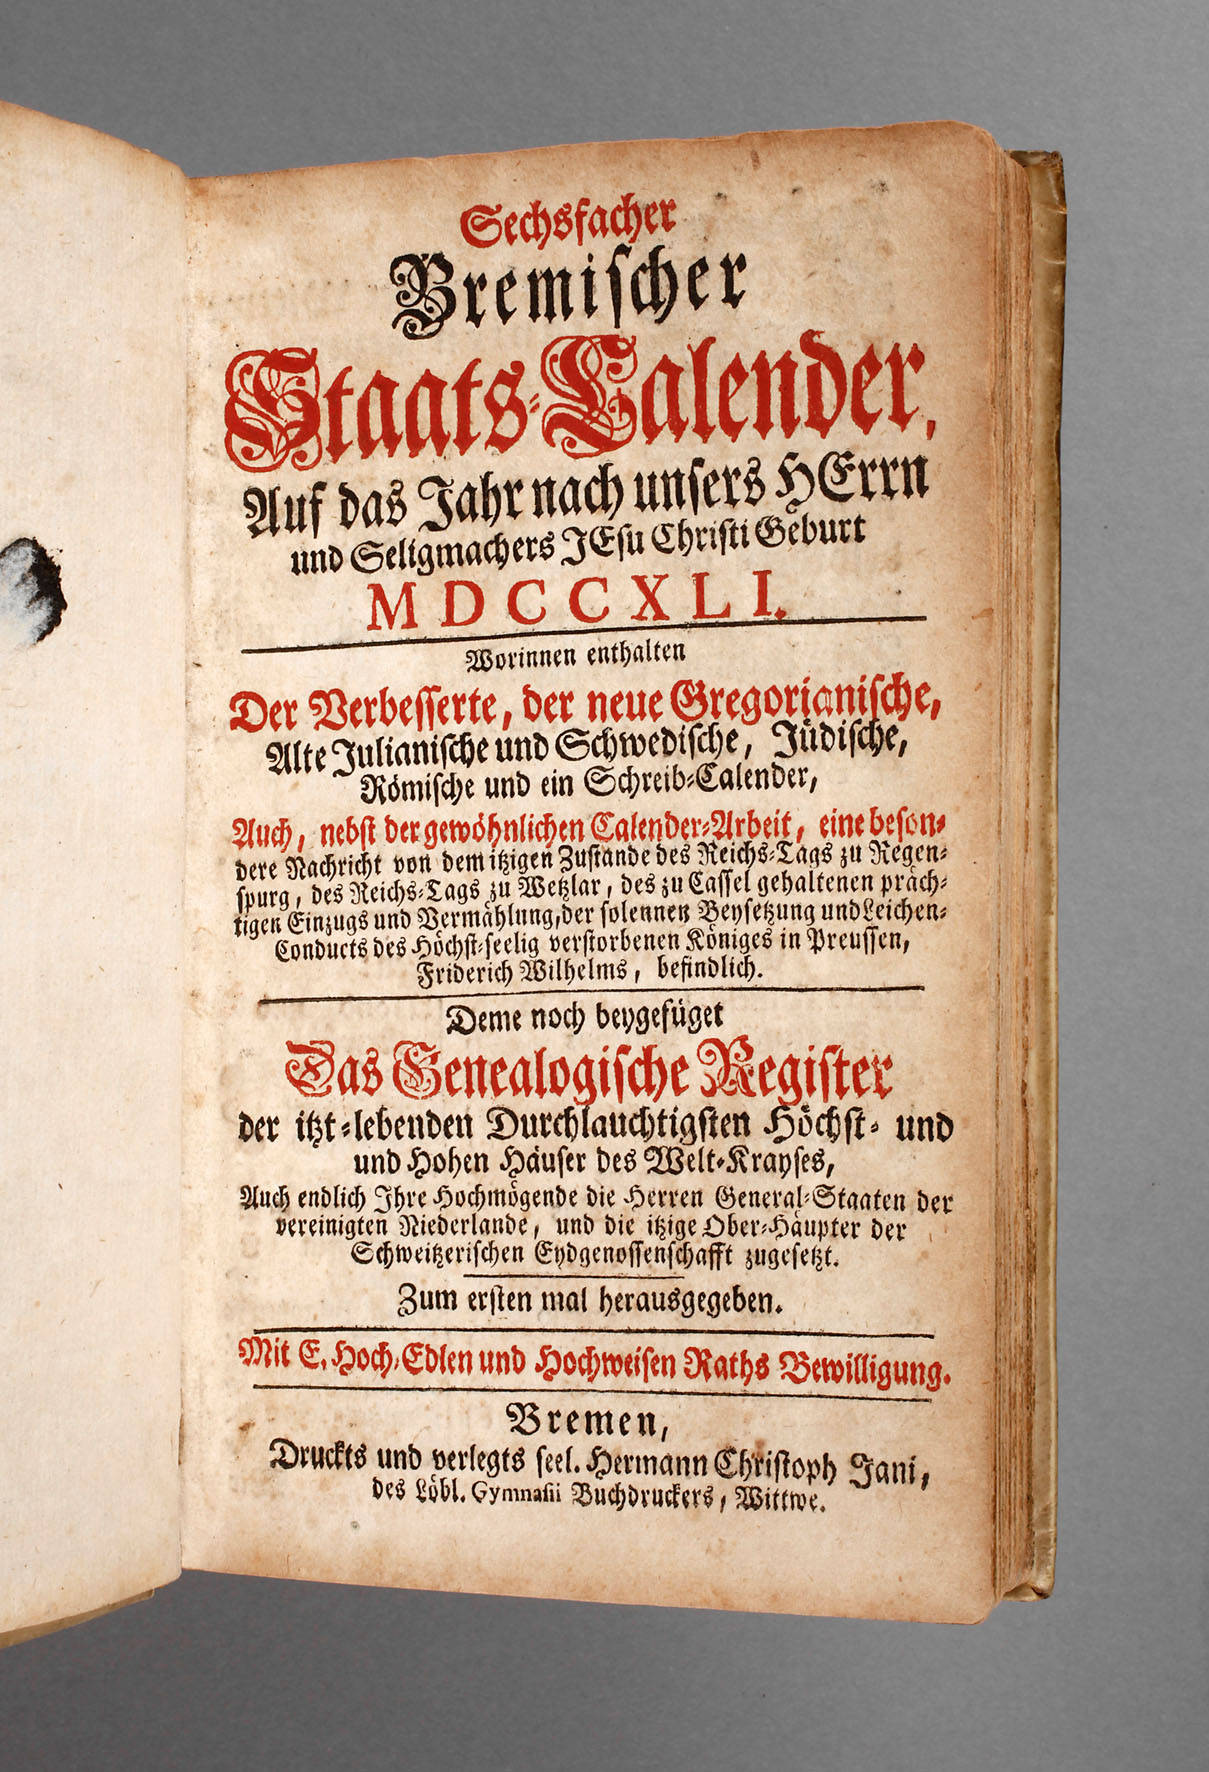 Sechsfacher
Bremischer
Staats-Calender,
Auf das Jahr nach unsers HErrn
und Seligmachers JEsu Christi Geburt
MDCCXLI.
Worinnen enthalten
Der Verbesserte, der neue Gregorianische,
Alte Julianische und Schwedische, Jüdische,
Römische und ein Schreib-Calender,
Auch, nebst der gewöhnlichen Calender-Arbeit, eine beson-
dere Nachricht von dem itzigen Zustande des Reichs-Tags zu Regen-
spurg, des Reichs-Tags zu Wetzlar, des zu Cassel gehaltenen präch-
tigen Einzugs und Vermählung, der solennen Beysetzung und Leichen-
Conducts des Höchst-seelig verstorbenen Königes in Preussen,
Friderich Wilhelms, befindlich.
Deme noch beygefüget
Das Genealogische Register
der itzt-lebenden Durchlauchtigsten Höchst- und
und Hohen Häuser des Welt-Krayses,
Auch endlich Ihre Hochmögende die Herren General-Staaten der
vereinigten Niederlande, und die itzige Ober-Häupter der
Schweitzerischen Eydgenossenschafft zugesetzt.
Zum ersten mal herausgegeben.
Mit E. Hoch-Edlen und Hochweisen Raths Bewilligung.
Bremen,
Druckts und verlegts seel. Hermann Christoph Jani,
des Löbl. Gymnasii Buchdruckers, Wittwe.